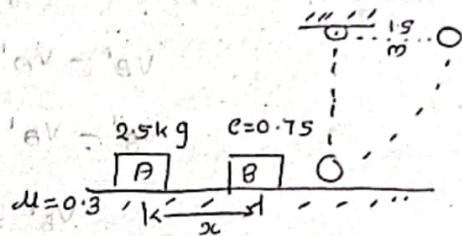 1.5
m
2.5kg e=0.75
A B
μ=0.3
x